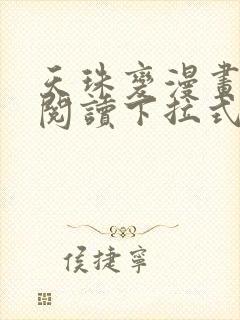 天珠變漫畫
閱讀下拉式
侯捷寧